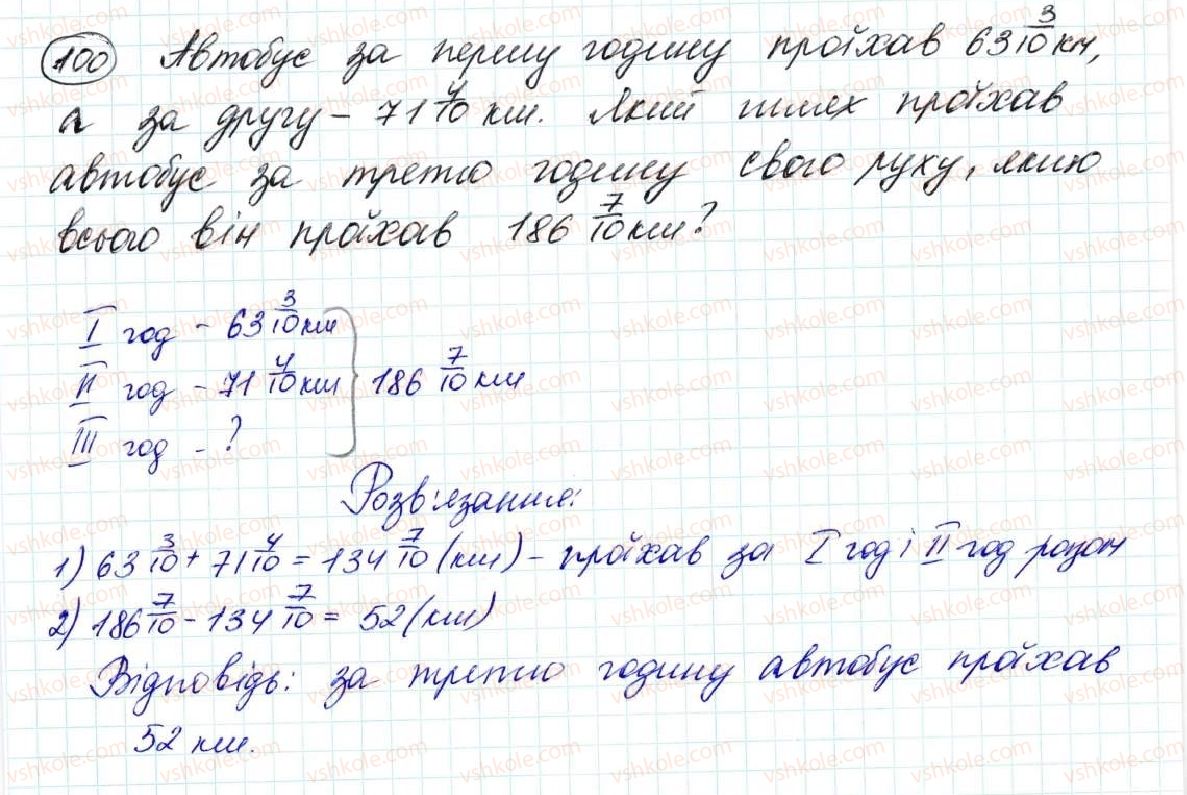 100 Автобус за першу годину проїхав 63 3/10 км,
а за другу – 71 4/10 км. Який шлях проїхав
автобус за третю годину свого руху, якщо
всього він проїхав 186 7/10 км?
I год – 63 3/10 км
II год – 71 4/10 км } 186 7/10 км
III год – ?
Розв'язання:
1) 63 3/10 + 71 4/10 = 134 7/10 (км) – проїхав за I год і II год разом
2) 186 7/10 – 134 7/10 = 52 (км)
Відповідь: за третю годину автобус проїхав
52 км.
vshkole.com